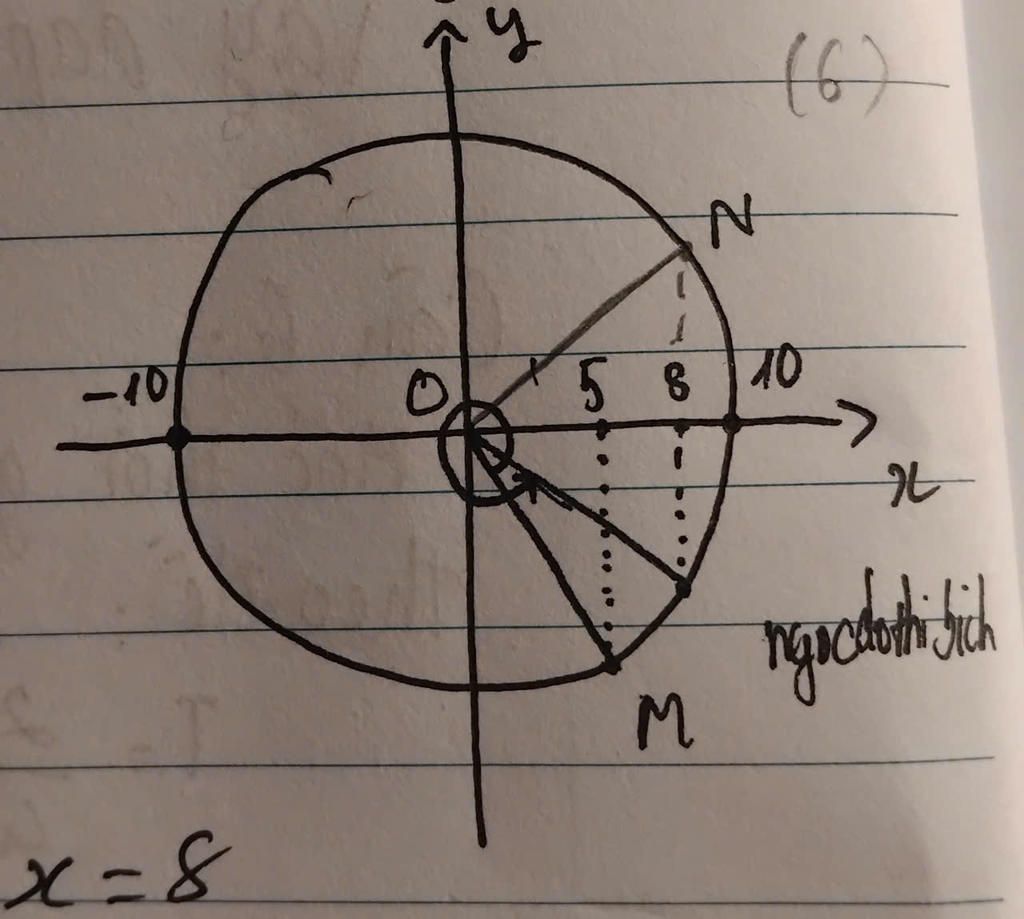 y
(6)
N
-10 O 5 8 10
x
ngocdothibich
M
x = 8